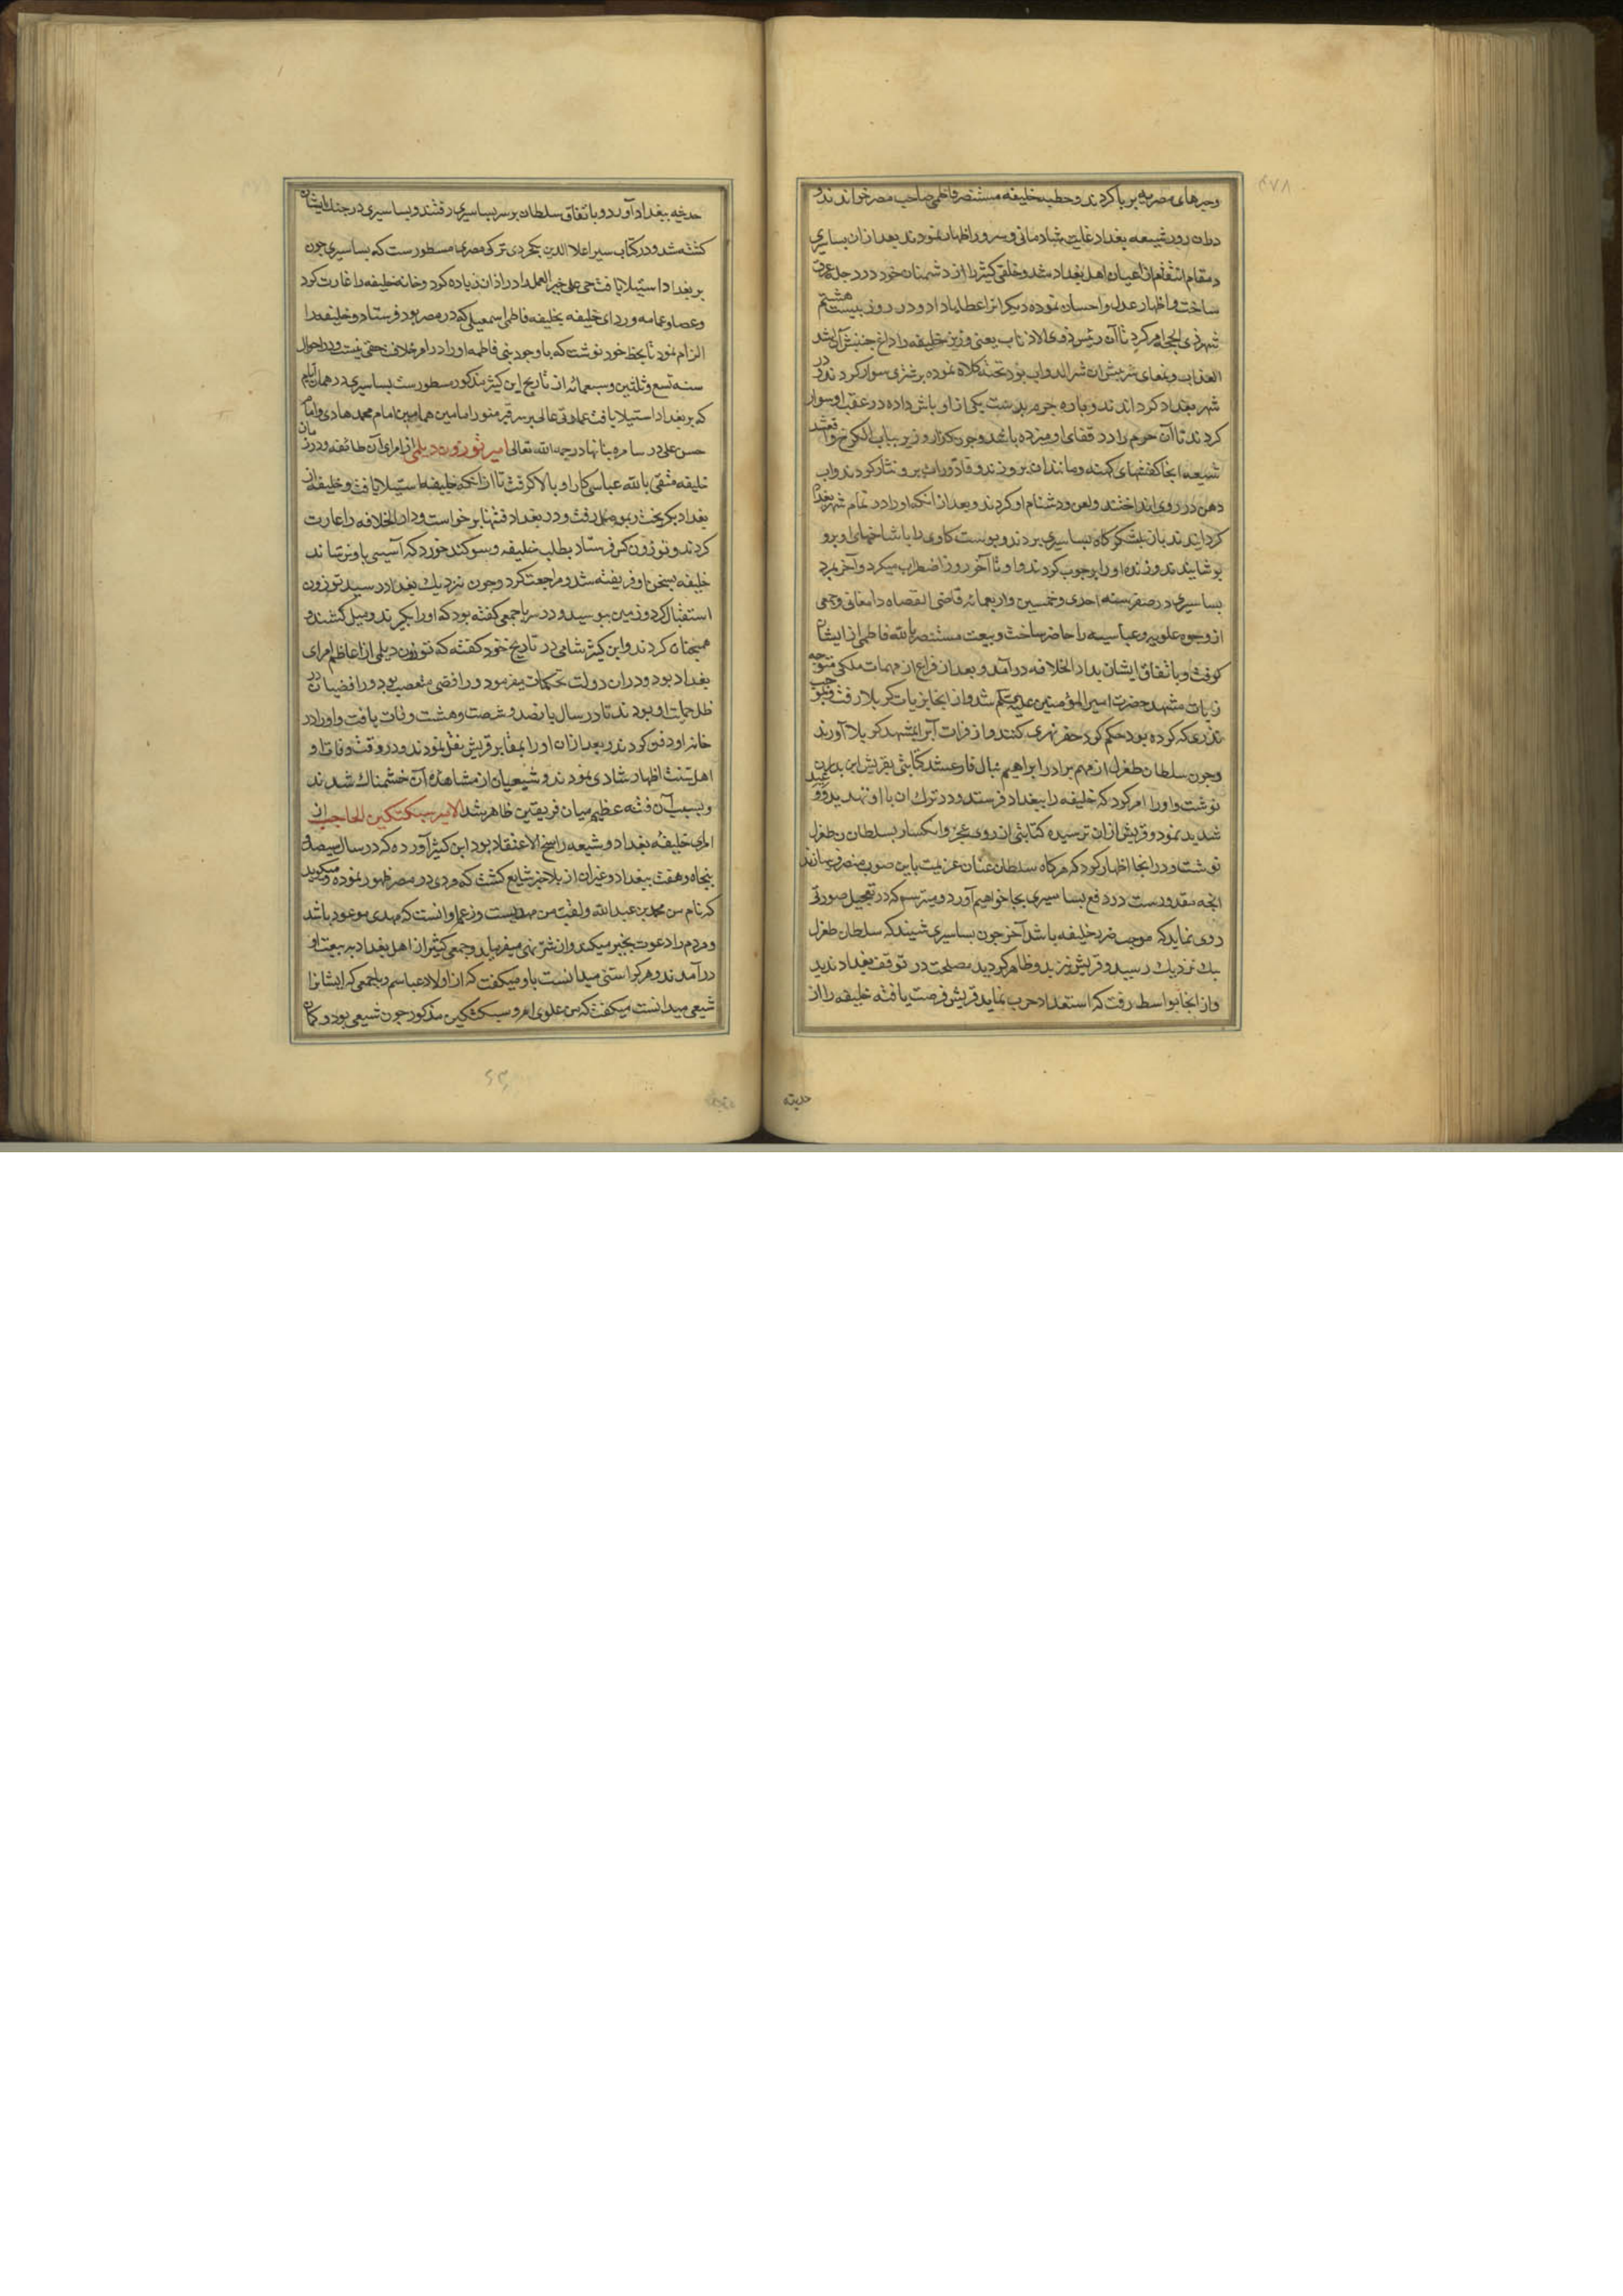 ۴۷۸
وخیرهای مصریه برپا کردند و خطبه خلیفه مستنصر فاطمی صاحب مصر خواندند و
دران روز شیعه بغداد غایت شادمانی و سرور اظهار نمودند بعد ازان بساسیری
در مقام انتقام از اعیان اهل بغداد شد و خلقی کثیر را از دشمنان خود در دجله غرق
ساخت و اظهار عدل و احسان نموده دیکرانرا عطایا داد و در روز بیست هشتم
شهر ذی الحجه امر کرد تا آن رئیس ذوی الاذناب یعنی وزیر خلیفه را
شهر بغداد کردانیدند و پاره جرم بدست یکی از اوباش داده در عقب او سوار
کردند تا آن جرم را در قفای او میزده باشد و چون گذار وزیر بباب الکرخ واقع شد
شیعه انجا کفشهای کهنه و مانند ان برو زدند و قاذورات برو نثار کردند و آب
دهن در روی او انداختند و لعن و دشنام او کردند و بعد از انکه او را در تمام شهر بغداد
کردانیدند باز بلشکرگاه بساسیری بردند و پوست کاوی را با شاخهای او برو
پوشانیدند و زنده او را برچوب کردند و او تا آخر روز اضطراب میکرد و آخر بمرد
بساسیری در صفر سنه احدی و خمسین و اربعمائه قاضی القضاه دامغانی و جمعی
از وجوه علویه و عباسیه را حاضر ساخت و بیعت مستنصر بالله فاطمی از ایشان
کرفت و باتفاق ایشان بدار الخلافه درآمد و بعد از فراغ از مهمات ملکی متوجه
زیارت مشهد حضرت امیر المؤمنین علیه السلم شد و از انجا بزیارت کربلا رفت و بموجب
نذری که کرده بود حکم کرد حفر نهری کنند و از فرات آبرا بمشهد کربلا آورند
وچون سلطان طغرل از مهم برادر ابراهیم نیال فارغ شد کتابتی بقریش بن بدران
نوشت و او را امر کرد که خلیفه را ببغداد فرستد و در ترک ان با او تهدید و وعید
شدید نمود و قریش ازان ترسیده کتابتی از روی عجز و انکسار بسلطان طغرل
نوشت و در انجا اظهار کرد که هرکاه سلطان عنان عزیمت باین صوب منصرف سازند
انچه مقدورست در دفع بساسیری بجا خواهیم آورد و میترسم که در تعجیل صورتی
روی نماید که موجب ضرر خلیفه باشد آخر چون بساسیری شنید که سلطان طغرل
بیک نزدیک رسید و قریش نیز برو ظاهر کردید مصلحت در توقف بغداد ندید
و از انجا بواسط رفت که استعداد حرب نماید قریش فرصت یافته خلیفه را از
حدیثه
حدیثه ببغداد آورد و باتفاق سلطان بر سر بساسیری رفتند و بساسیری در جنک ایشان
کشته شد و در کتاب سیر اعلا الدین ترکی مصری مسطورست که بساسیری چون
بر بغداد استیلا یافت حی علی خیر العمل را در اذان زیاده کرد و خانه خلیفه را غارت کرد
و عصا و عمامه و ردای خلیفه بخلیفه فاطمی اسمعیلی که در مصر بود فرستاد و خلیفه را
الزام نمود تا بخط خود نوشت که با وجود بنی فاطمه او را در امر خلافت حقی نیست و در احوال
سنه تسع و ثلثین و سبعمائه از تاریخ ابن کثیر مذکور مسطورست بساسیری در همان ایام
که بر بغداد استیلا یافت عمارتی عالی بر سر قبر منور امامین همامین امام محمد هادی و امام
حسن علی در سامره بنا نهاد رحمه الله تعالی امیر توزون دیلمی از امرای آن طائفه و در زمان
خلیفه متقی بالله عباسی کار او بالا کرفت تا از انکه خلیفه استیلا یافت و خلیفه از
بغداد بکریخت و بموصل رفت و در بغداد فتنها برخواست و دار الخلافه را غارت
کردند و توزون کس فرستاد بطلب خلیفه و سوکند خورد که آسیبی باو نرساند
خلیفه بسخن او فریفته شد و مراجعت کرد و چون نزدیک بغداد رسید توزون
استقبال کرد و زمین ببوسید و در سر با جمعی کفته بود که او را بکیرند و میل کشند و
همچنان کردند و ابن کثیر شامی در تاریخ خود کفته که توزون دیلمی از اعاظم امرای
بغداد بود و دران دولت تحکمات میفرمود و رافضی متعصب بود و رافضیان در
ظل حمایت او بودند تا در سال پانصد و شصت و هشت وفات یافت و او را در
خانه او دفن کردند و بعد ازان او را بمقابر قریش نقل نمودند و در وقت وفات او
اهل سنت اظهار شادی نمودند و شیعیان از مشاهده آن خشمناک شدند
و بسبب آن فتنه عظیم میان فریقین ظاهر شد الامیر سبکتکین الحاجب از
امرای خلیفه بغداد و شیعه راسخ الاعتقاد بود ابن کثیر آورده که در سال سیصد و
پنجاه و هفت ببغداد و غیر ان از بلاد خبر شایع کشت که مردی در مصر ظهور نموده و میکوید
که نام من محمد بن عبدالله و لقب من مهدیست و زعم او انست که مهدی موعود باشد
و مردم را دعوت بخیر میکند و از شر نهی میفرماید و جمعی کثیر از اهل بغداد به بیعت او
درآمدند و هرکرا سنی میدانست باو میکفت که از اولاد عباسم و با جمعی که ایشانرا
شیعی میدانست میکفت که من علوی ام و سبکتکین مذکور چون شیعی بود و کمان